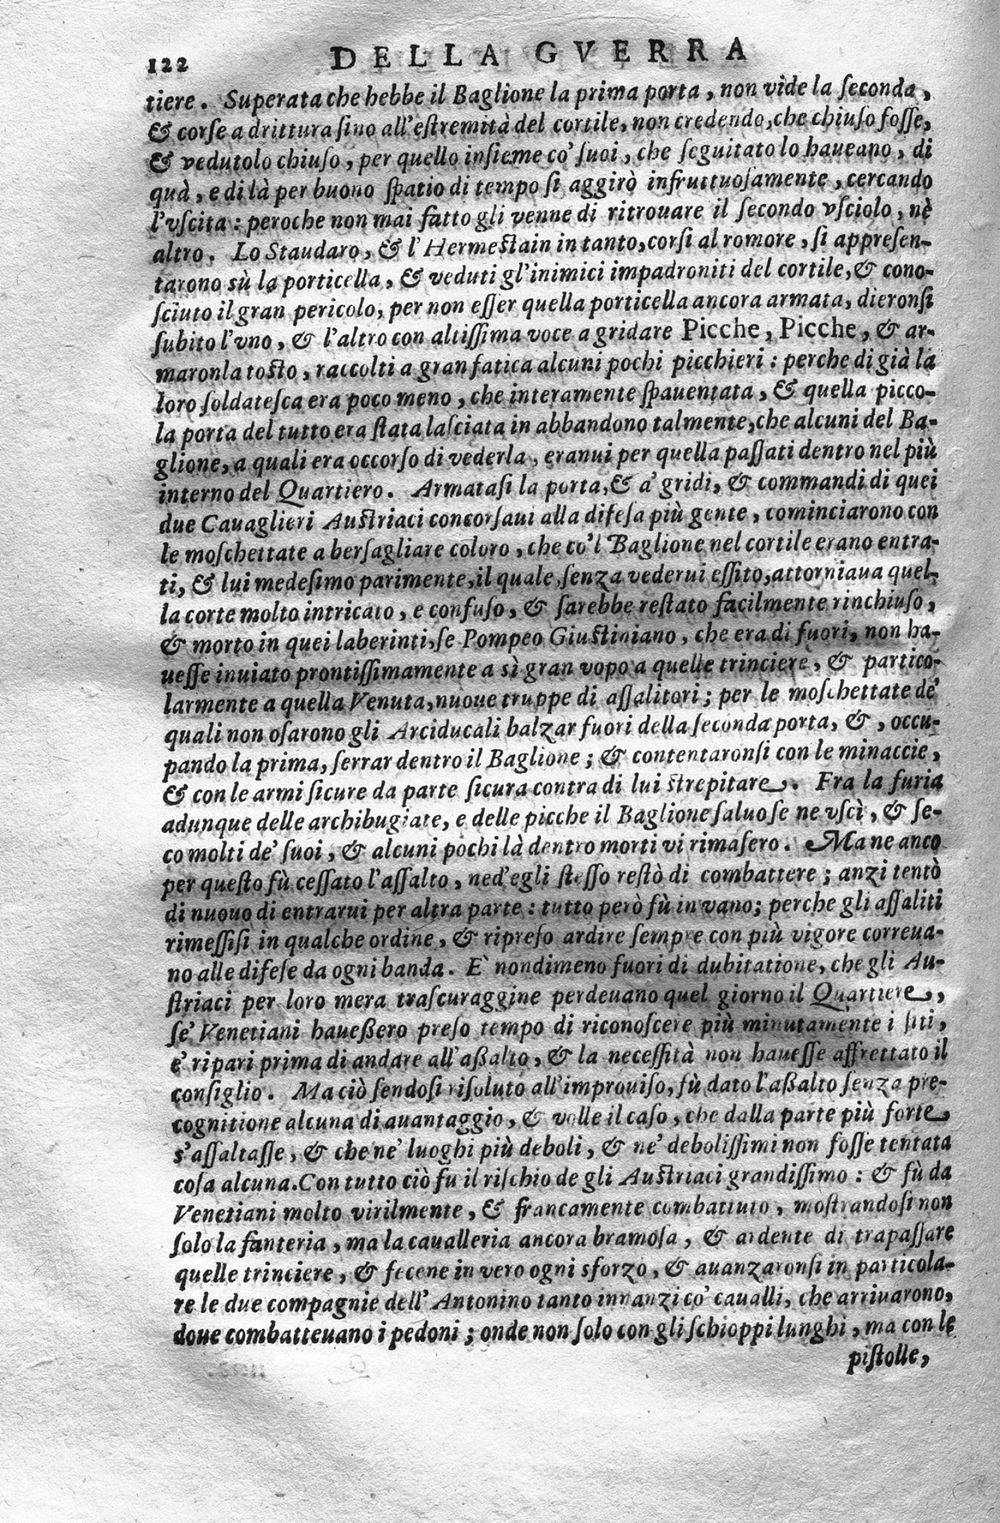 122 DELLA GVERRA
tiere. Superata che hebbe il Baglione la prima porta, non vìde la ſeconda,
& corſe a drittura ſino all'eſtremità del cortile, non credendo, che chiuſo foſſe,
& vedutolo chiuſo, per quello inſieme co' ſuoi, che ſeguitato lo haueano, di
quà, e di là per buono ſpatio di tempo ſi aggirò infruttuoſamente, cercando
l'vſcita: peroche non mai fatto gli venne di ritrouare il ſecondo vſciolo, nè
altro. Lo Staudaro, & l'Hermeſtain in tanto, corſi al romore, ſi appreſen-
tarono sù la porticella, & veduti gl'inimici impadroniti del cortile, & cono-
ſciuto il gran pericolo, per non eſſer quella porticella ancora armata, dieronſi
ſubito l'vno, & l'altro con altiſſima voce a gridare Picche, Picche, & ar-
maronla toſto, raccolti a gran fatica alcuni pochi picchieri: perche di già la
loro ſoldateſca era poco meno, che interamente ſpauentata, & quella picco-
la porta del tutto era ſtata laſciata in abbandono talmente, che alcuni del Ba-
glione, a quali era occorſo di vederla, eranui per quella paſſati dentro nel più
interno del Quartiero. Armataſi la porta, & a' gridi, & commandi di quei
due Cauaglieri Auſtriaci concorſaui alla difeſa più gente, cominciarono con
le moſchettate a berſagliare coloro, che co'l Baglione nel cortile erano entra-
ti, & lui medeſimo parimente, il quale, ſenza vederui eſſito, attorniaua quel-
la corte molto intricato, e confuſo, & ſarebbe reſtato facilmente rinchiuſo,
& morto in quei laberinti, ſe Pompeo Giuſtiniano, che era di fuori, non ha-
ueſſe inuiato prontiſſimamente a sì gran vopo a quelle trinciere, & partico-
larmente a quella Venuta, nuoue truppe di aſſalitori; per le moſchettate de'
quali non oſarono gli Arciducali balzar fuori della ſeconda porta, &, occu-
pando la prima, ſerrar dentro il Baglione; & contentaronſi con le minaccie,
& con le armi ſicure da parte ſicura contra di lui ſtrepitare. Fra la furia
adunque delle archibugiate, e delle picche il Baglione ſaluo ſe ne vſcì, & ſe-
co molti de' ſuoi, & alcuni pochi là dentro morti vi rimaſero. Ma ne anco
per queſto fù ceſſato l'aſſalto, ned'egli ſteſſo reſtò di combattere; anzi tentò
di nuouo di entrarui per altra parte: tutto però fù in vano; perche gli aſſaliti
rimeſſiſi in qualche ordine, & ripreſo ardire ſempre con più vigore correua-
no alle difeſe da ogni banda. E' nondimeno fuori di dubitatione, che gli Au-
ſtriaci per loro mera traſcuraggine perdeuano quel giorno il Quartiere,
ſe' Venetiani haueßero preſo tempo di riconoſcere più minutamente i ſiti,
e' ripari prima di andare all'aßalto, & la neceſſità non haueſſe affrettato il
conſiglio. Ma ciò ſendoſi riſoluto all'improuiſo, fù dato l'aßalto ſenza pre-
cognitione alcuna di auantaggio, & volle il caſo, che dalla parte più forte
s'aſſaltaſſe, & che ne' luoghi più deboli, & ne' deboliſſimi non foſſe tentata
coſa alcuna. Con tutto ciò fu il riſchio de gli Auſtriaci grandiſſimo: & fù da
Venetiani molto virilmente, & francamente combattuto, moſtrandoſi non
ſolo la fanteria, ma la caualleria ancora bramoſa, & ardente di trapaſſare
quelle trinciere, & fecene in vero ogni sforzo, & auanzaronſi in particola-
re le due compagnie dell'Antonino tanto innanzi co' caualli, che arriuarono,
doue combatteuano i pedoni; onde non ſolo con gli ſchioppi lunghi, ma con le
piſtolle,